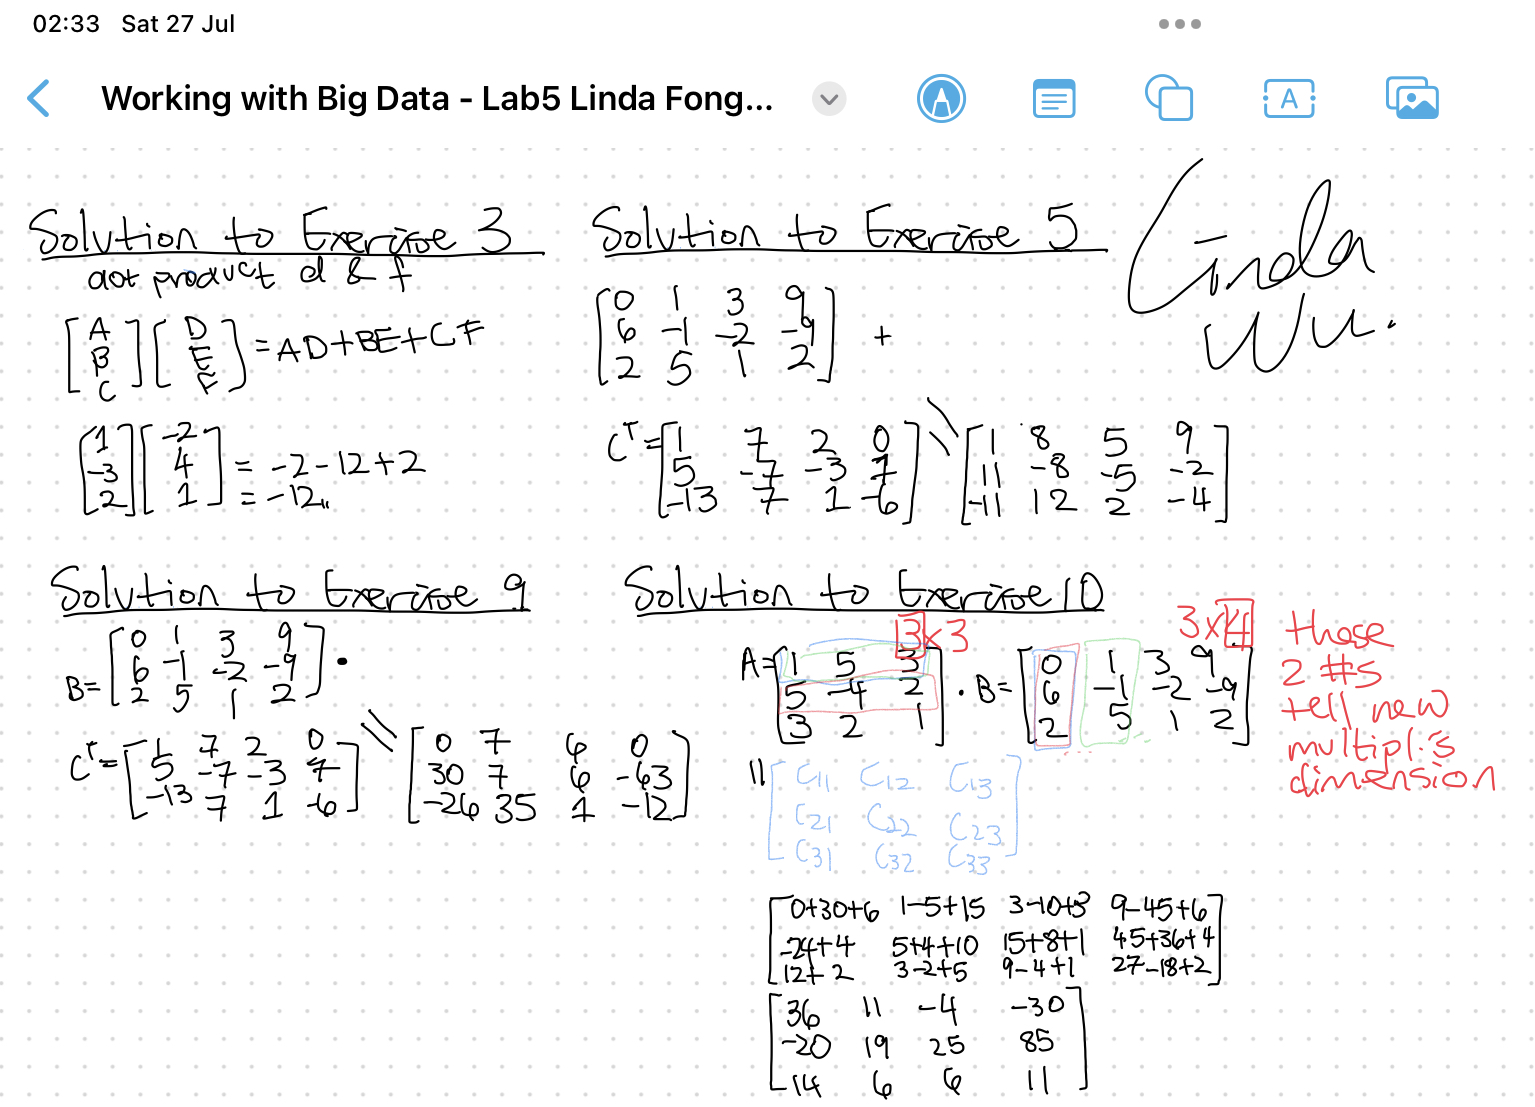 02:33 Sat 27 Jul
Working with Big Data - Lab5 Linda Fong...
A
Solution to Exercise 3
dot product d & f
[A B C] [D E F] = AD+BE+CF
[1 -3 2] [-2 4 1] = -2-12+2
= -12
Solution to Exercise 5
0 1 3 9
6 -1 -2 -9 +
2 5 1 2
C^T = 1 7 2 0
5 -7 -3 7
-13 7 1 -6
1 8 5 9
11 -8 -5 -2
-11 12 2 -4
Linda
Wu.
Solution to Exercise 9
0 1 3 9
6 -1 -2 -9 •
B= 2 5 1 2
C^T = 1 7 2 0
5 -7 -3 7
-13 7 1 -6
0 7 6 0
30 7 6 -63
-26 35 1 -12
Solution to Exercise 10
3x3
3x4
A= 1 5 3
5 -4 2
3 2 1
. B= 0 1 3 9
6 -1 -2 -9
2 5 1 2
these
2 #s
tell new
multipl.'s
dimension
C11 C12 C13
C21 C22 C23
C31 C32 C33
0+30+6 1-5+15 3-10+3 9-45+6
-24+4 5+4+10 15+8+1 45+36+4
12+2 3-2+5 9-4+1 27-18+2
36 11 -4 -30
-20 19 25 85
14 6 6 11